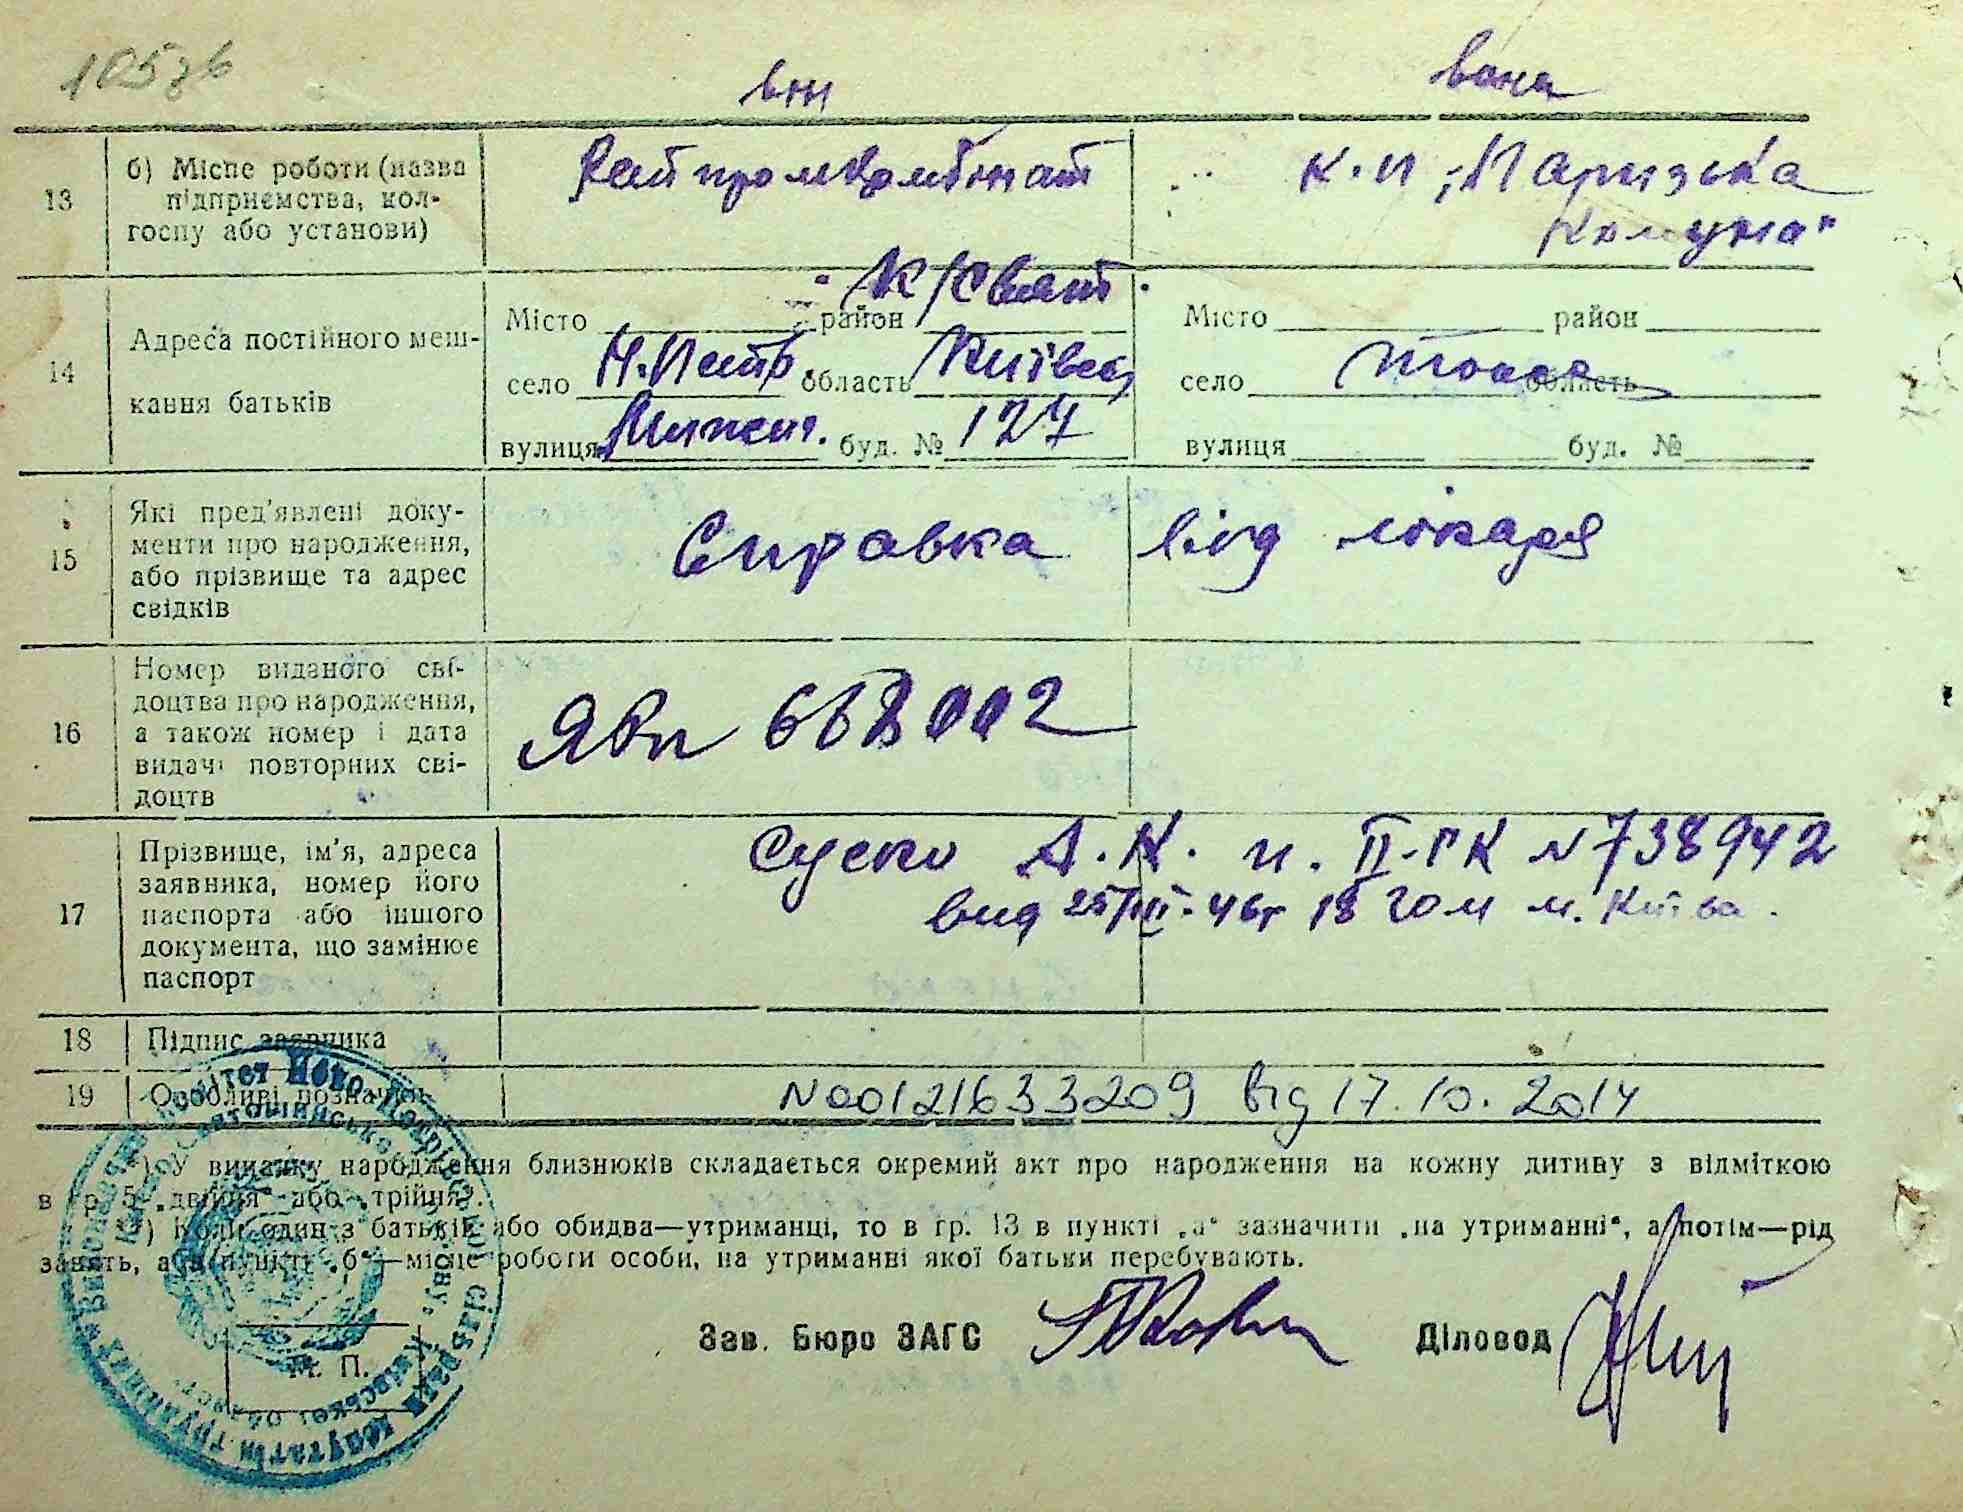 105зв
він вона
13 б) Місце роботи (назва підприємства, колгоспу або установи)
Райпромкомбінат
к-п „Паризька
Комуна"
14 Адреса постійного мешкання батьків
К/Святош.
Місто район
село Н. Петр. область Київськ
вулиця буд. № 127
Місто район
село тоже область
вулиця буд. №
15 Які пред'явлені документи про народження, або прізвище та адрес свідків
Справка від лікаря
16 Номер виданого свідоцтва про народження, а також номер і дата видачі повторних свідоцтв
17 Прізвище, ім'я, адреса заявника, номер його паспорта або іншого документа, що замінює паспорт
Суско А. К. п. II-ГК №738942
вид 46г 18 гом м. Київа.
18 Підпис заявника
19 Особливі позначки
N00121633209 від 17.10.2014
*) У випадку народження близнюків складається окремий акт про народження на кожну дитину з відміткою
в гр. 5 „двійня" або „трійня".
**) Коли один з батьків або обидва—утриманці, то в гр. 13 в пункті „а" зазначити „на утриманні", а потім—рід
занять, а в пункті „б"—місце роботи особи, на утриманні якої батьки перебувають.
Зав. Бюро ЗАГС Діловод
М. П.